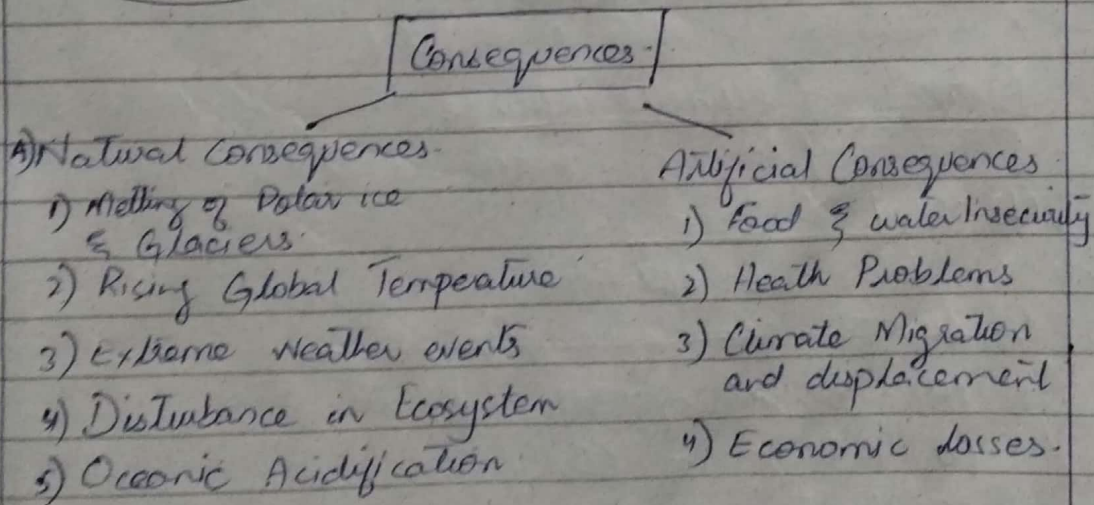 Consequences.
A) Natural Consequences.
1) Melting of Polar ice
& Glaciers.
2) Rising Global Temperature
3) Extreme Weather events
4) Disturbance in Ecosystem
5) Oceanic Acidification
Artificial Consequences
1) Food & water Insecurity
2) Health Problems
3) Climate Migration
and displacement
4) Economic losses.